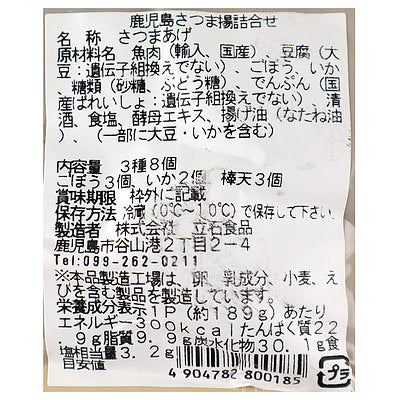 鹿児島さつま揚詰合せ
名　称　さつまあげ
原材料名　魚肉（輸入、国産）、豆腐（大
豆：遺伝子組換えでない）、ごぼう、いか
、糖類（砂糖、ぶどう糖）、でんぷん（国
産ばれいしょ：遺伝子組換えでない）、清
酒、食塩、酵母エキス、揚げ油（なたね油
）、（一部に大豆・いかを含む）
内容量　３種８個
ごぼう３個、いか２個　棒天３個
賞味期限　枠外に記載
保存方法　冷蔵（０℃～１０℃）で保存して下さい。
製造者　株式会社　立石食品
鹿児島市谷山港２丁目２－４
Tel:099-262-0211
※本品製造工場は、卵、乳成分、小麦、え
びを含む製品を製造しています。
栄養成分表示１Ｐ（約１８９ｇ）あたり
エネルギー３００ｋｃａｌたんぱく質２２
．９ｇ脂質９．９ｇ炭水化物３０．１ｇ食
塩相当量３．２ｇ
目安値
4 904782 800185
プラ